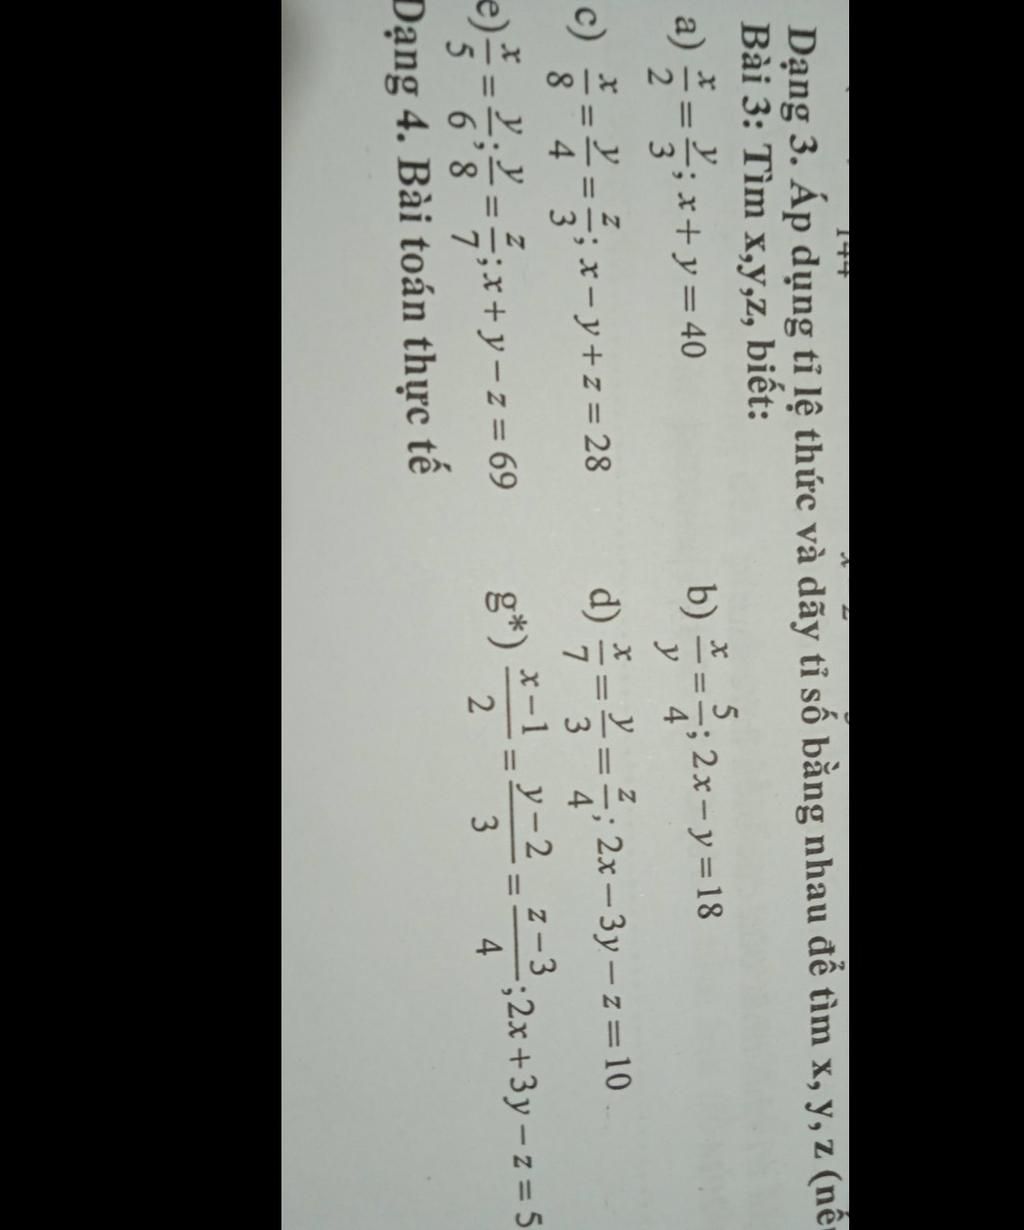 144
Dạng 3. Áp dụng tỉ lệ thức và dãy tỉ số bằng nhau để tìm x, y, z (nếu
Bài 3: Tìm x,y,z, biết:
a) x/2 = y/3; x + y = 40
b) x/y = 5/4; 2x − y = 18
c) x/8 = y/4 = z/3; x − y + z = 28
d) x/7 = y/3 = z/4; 2x − 3y − z = 10
e) x/5 = y/6; y/8 = z/7; x + y − z = 69
g*) (x−1)/2 = (y−2)/3 = (z−3)/4; 2x + 3y − z = 5
Dạng 4. Bài toán thực tế